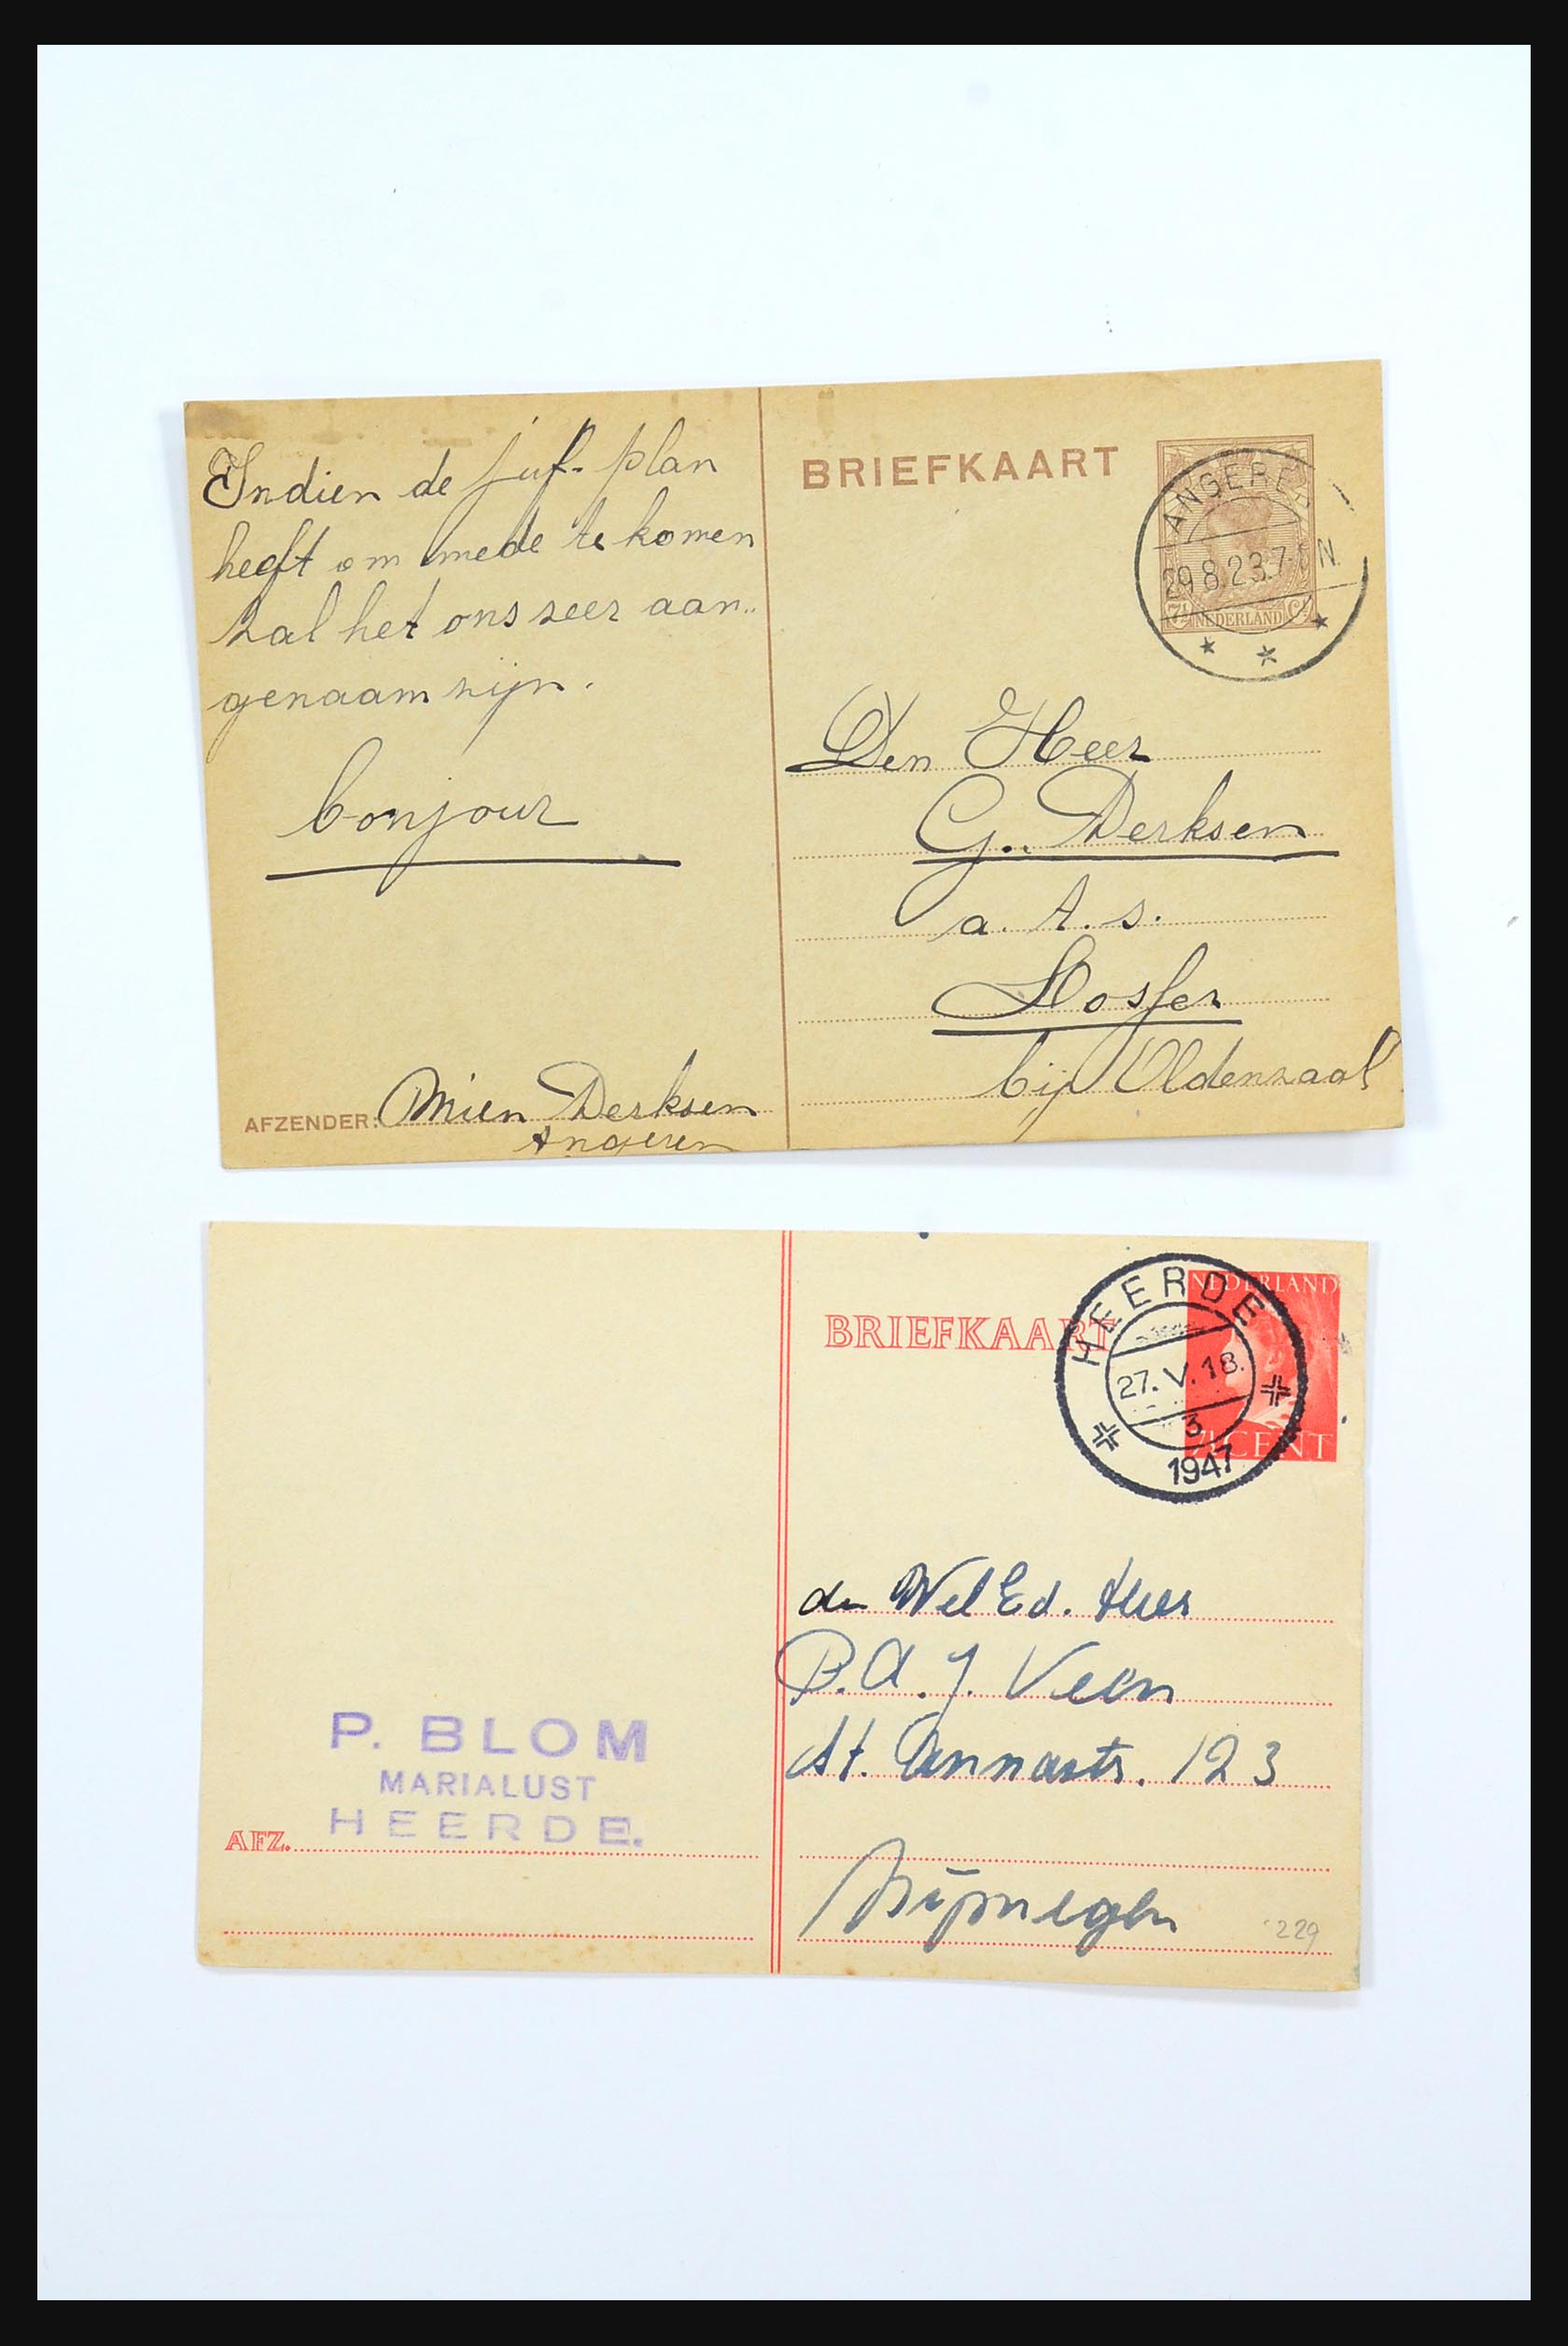 Indien de juf. plan
heeft om mede te komen
zal het ons zeer aan..
genaam zijn.
bonjour
AFZENDER: Mien Derksen
Angeren
BRIEFKAART
ANGERE
29.8.23.7- N.
7½ NEDERLAND Ct
Den Heer
G. Derksen
a. h. s.
Losser
bij Oldenzaal
BRIEFKAART
NEDERLAND
7½ CENT
HEERDE
27.V.18.
3
1947
den Wel Ed. Heer
P.A.J. Veen
St. Annastr. 123
Nijmegen
229
P. BLOM
MARIALUST
HEERDE.
AFZ.